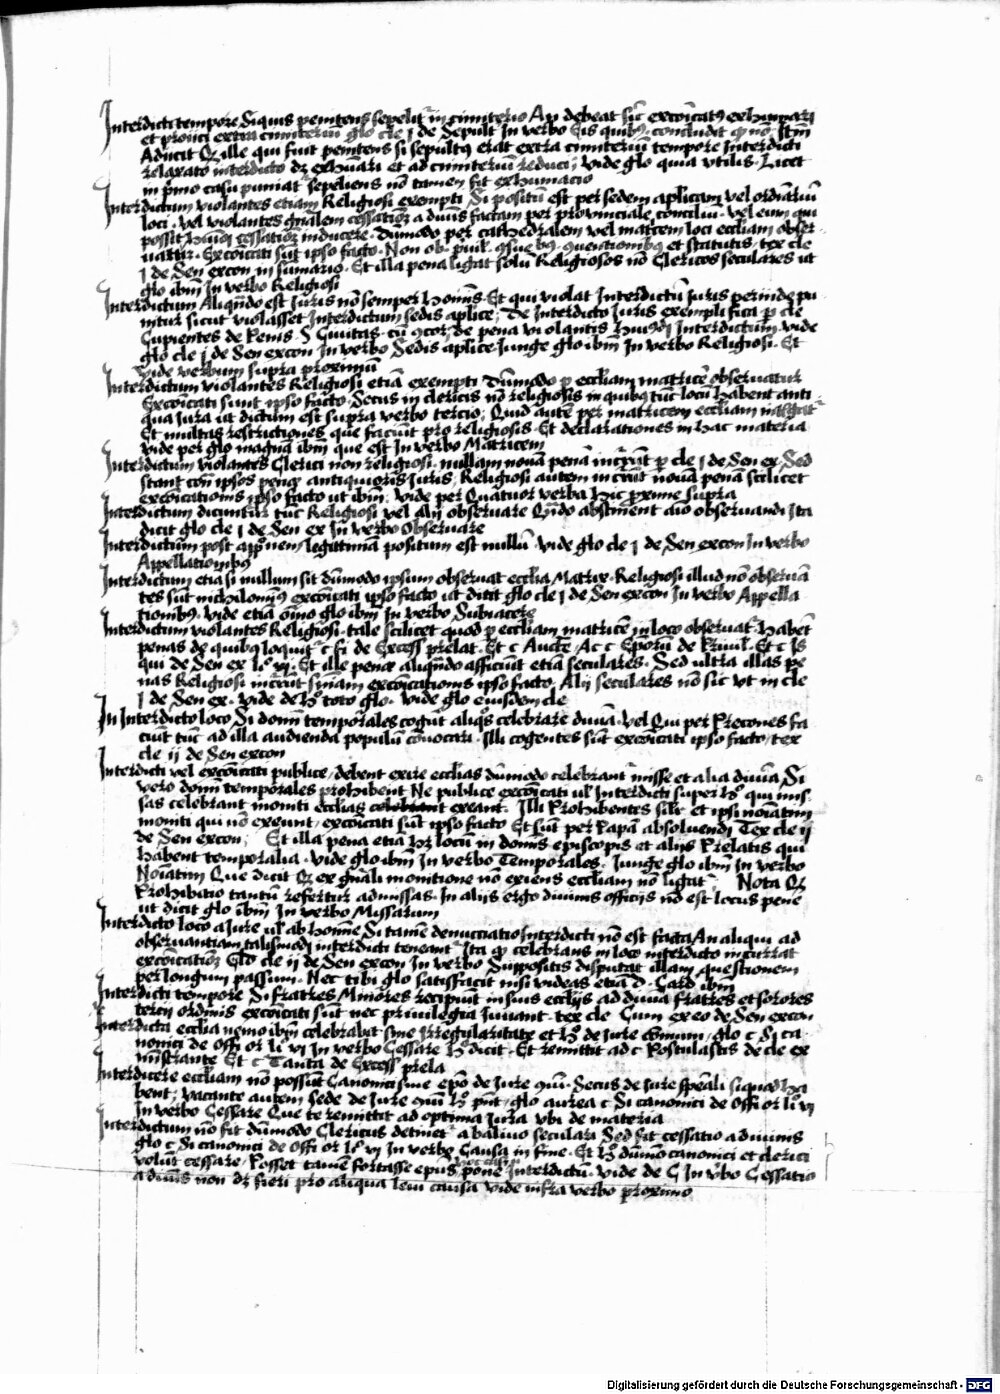 Interdicti tempore Siquis penitens sepelit̃ in cimiterio An debeat sic̃ excoĩcatꝰ exhumari
et proiici extra cimiteriũ glo cle j de Sepult In verbo Eis quibꝰ concludit ꝙ nõ Itm̃
Adiicit Qz ille qui fuit penitens si sepultus erat extra cimiteriũ tempore Interdicti
relaxato interdicto dz exhũari et ad cimiteriũ reduci; vide glo quia vtilis. Licet
in pͥmo casu puniat̃ sepeliens nõ tamen fit exhumacio
Interdictum violantes etiam Religiosi exempti Si positũ est per sedem aplicam vel ordiariũ
loci. vel violantes gñalem cessatioẽ a diuis factam per prouinciale conciliũ. vel eum qui
possit cessatioẽ inducere. Dũmodo per cathedralem vel matrcem loci eccliam obser-
uatur. Excoĩcati sũt ipso facto. Non ob. et statutis. tex cle
j de Sen excon in sumario. Et illa pena ligat solũ Religiosos nõ Clericos seculares ut
glo ibm̃ in verbo Religiosi
Interdictum Aliqñdo est Iuris nõ semper hoĩnis. Et qui violat Interdictũ Iuris perinde pu
nitur sicut violasset Interdictum sedis aplice; De Interdicto Iuris exempli fica ꝑ cle
Cupientes de Penis. § Ciuitas. cũ ꝯcor. de pena violantis Interdictum. vide
glo cle j de Sen excon In verbo Sedis aplice. Iunge glo ibm̃ In verbo Religiosi. Et
vide verbum supra proximũ
Interdictum violantes Religiosi etiã exempti Dũmodo ꝑ eccliam matricẽ observatur
Excoĩcati sunt ipso facto. Secus in clericis nõ religiosis in quibꝰ tũc locũ habent anti
qua Iura ut dictum est supra verbo tercio; Quid autẽ per matricem eccliam
Et multas restrictiones que faciũt pro religiosis. Et declarationes in hac materia
vide per glo magnã ibm̃ que est In verbo Matricem
Interdictum violantes Clerici non religiosi. nullam nouã penã incurrũt ꝑ cle j de Sen ex. Sed
stant con̄ ipsos pene antiquioris Iuris; Religiosi autem incurrũt nouã penã scilicet
excoĩcationis ipso facto ut ibm̃. Vide per Quatuor verba hic pxime supra
Interdictum dicuntur tũc Religiosi vel alij observare Qñdo abstinent a observandi Ita
dicit glo cle j de Sen ex In verbo Observare
Interdictum post appͦnem legittimã positum est nullũ. Vide glo cle j de Sen excon In verbo
Appellationibꝰ
Interdictum etia si nullum sit dũmodo ipsum observat ecclia Matrix. Religiosi illud nõ observã
tes sũt nichilominꝰ excoĩcati ipso facto ut dicit glo cle j de Sen excon In verbo Appella
tionibꝰ. Vide etiã oĩno glo ibm̃ In verbo Subiacere
Interdictum violantes Religiosi. tale scilicet quod ꝑ eccliam matricẽ in loco observat̃. habẽt
penas de quibꝰ loquit̃ c fi de Excess prelat. Et c Aucte; Ac c Eporũ de Priuil. Et c Is
qui de Sen ex Liͦ vj. Et ille pene aliqñdo afficiũt etiã seculares. Sed ultra illas pe
nas Religiosi incurrũt sñiam excoĩcationis ipso facto. Alij seculares nõ sic ut in cle
j de Sen ex. Vide de hͦ toto glo. Vide glo eiusdem cle
In Interdicto loco Si domĩ temporales cogũt aliqͦs celebrare diuia. vel Qui per Precones fa
ciũt tũc ad illa audienda populũ cõuocari. Illi cogentes sũt excoĩcati ipso facto. tex
cle ij de Sen excon
Interdicti vel excoĩcati publice. debent exire ecclias dũmodo celebrant̃ misse et alia diuia. Si
vero domĩ temporales prohibent Ne publice excoĩcati ul Interdicti super hͦ qui mis-
sas celebrant moniti ecclias exeant. Illi Prohibentes silr et ipsi noĩatim
moniti qui nõ exeunt, excoĩcati sũt ipso facto Et sũt per Papã absoluendi Tex cle ij
de Sen excon; Et illa pena etia hz locũ in domĩs episcopis et alijs Prelatis qui
habent temporalia. vide glo ibm̃ In verbo Temporales. Iunge glo ibm̃ In verbo
Noĩatim Que dicit Qz ex gñali monitione nõ exiens eccliam nõ ligat̃. Nota Qz
Prohibitio tantũ refertur ad missas. In alijs ergo diuinis officijs nõ est locus pene
ut dicit glo ibm̃ In verbo Missarum
Interdicto loco a Iure ul ab homĩe Si tamẽ denucciatio Interdicti nõ est facta An aliqui ad
observantiam talismodj interdicti teneant̃ Ita ꝙ celebrans in loco interdicto incurrat
excoĩcatioẽ Glo cle ij de Sen excon In verbo Suppositis disputat illam questionem
per longum passum. Nec tibi glo satisfacit nisi videas etiã d. Card ibm̃
Interdicti tempore Si fratres Minores recipiũt in suis ecclijs ad diuia fratres et sorores
tercij ordinis excoĩcati sũt nec priuilegia iuuant. tex cle Cum ex eo de Sen excon
Interdicta ecclia nemo ibm̃ celebrabit sine Irregularitate et hͦ de iure cõmuni. glo c Si ca-
nonici de Offi or li vj In verbo Cessare hͦ dicit. Et remittit ad c Postulastis de cle ex
mĩstrante Et c Tanta de Excess prela
Interdicere eccliam nõ possũt Canonici sine epõ de iure cõi. Secus de iure speali siquod ha
bent; vacante autem sede de iure cõi hͦ pñt. glo aurea c Si canonici de Offi or liͦ vj
In verbo Cessare Que te remittit ad optima Iura ubi de materia
Interdictum nõ fit dũmodo Clericus detinet̃ a baliuo seculari Sed fit cessatio a diuinis
glo c Si canonici de Offi or liͦ vj In verbo Causa in fine. Et hͦ dũmo canonici et clerici
volũt cessare. Posset tamẽ fortasse epus pone Interdictũ. Vide de C In vͦbo Cessatio
a diuĩs non dz fieri pro aliqua leui causa vide infra verbo proximo
Digitalisierung gefördert durch die Deutsche Forschungsgemeinschaft - DFG